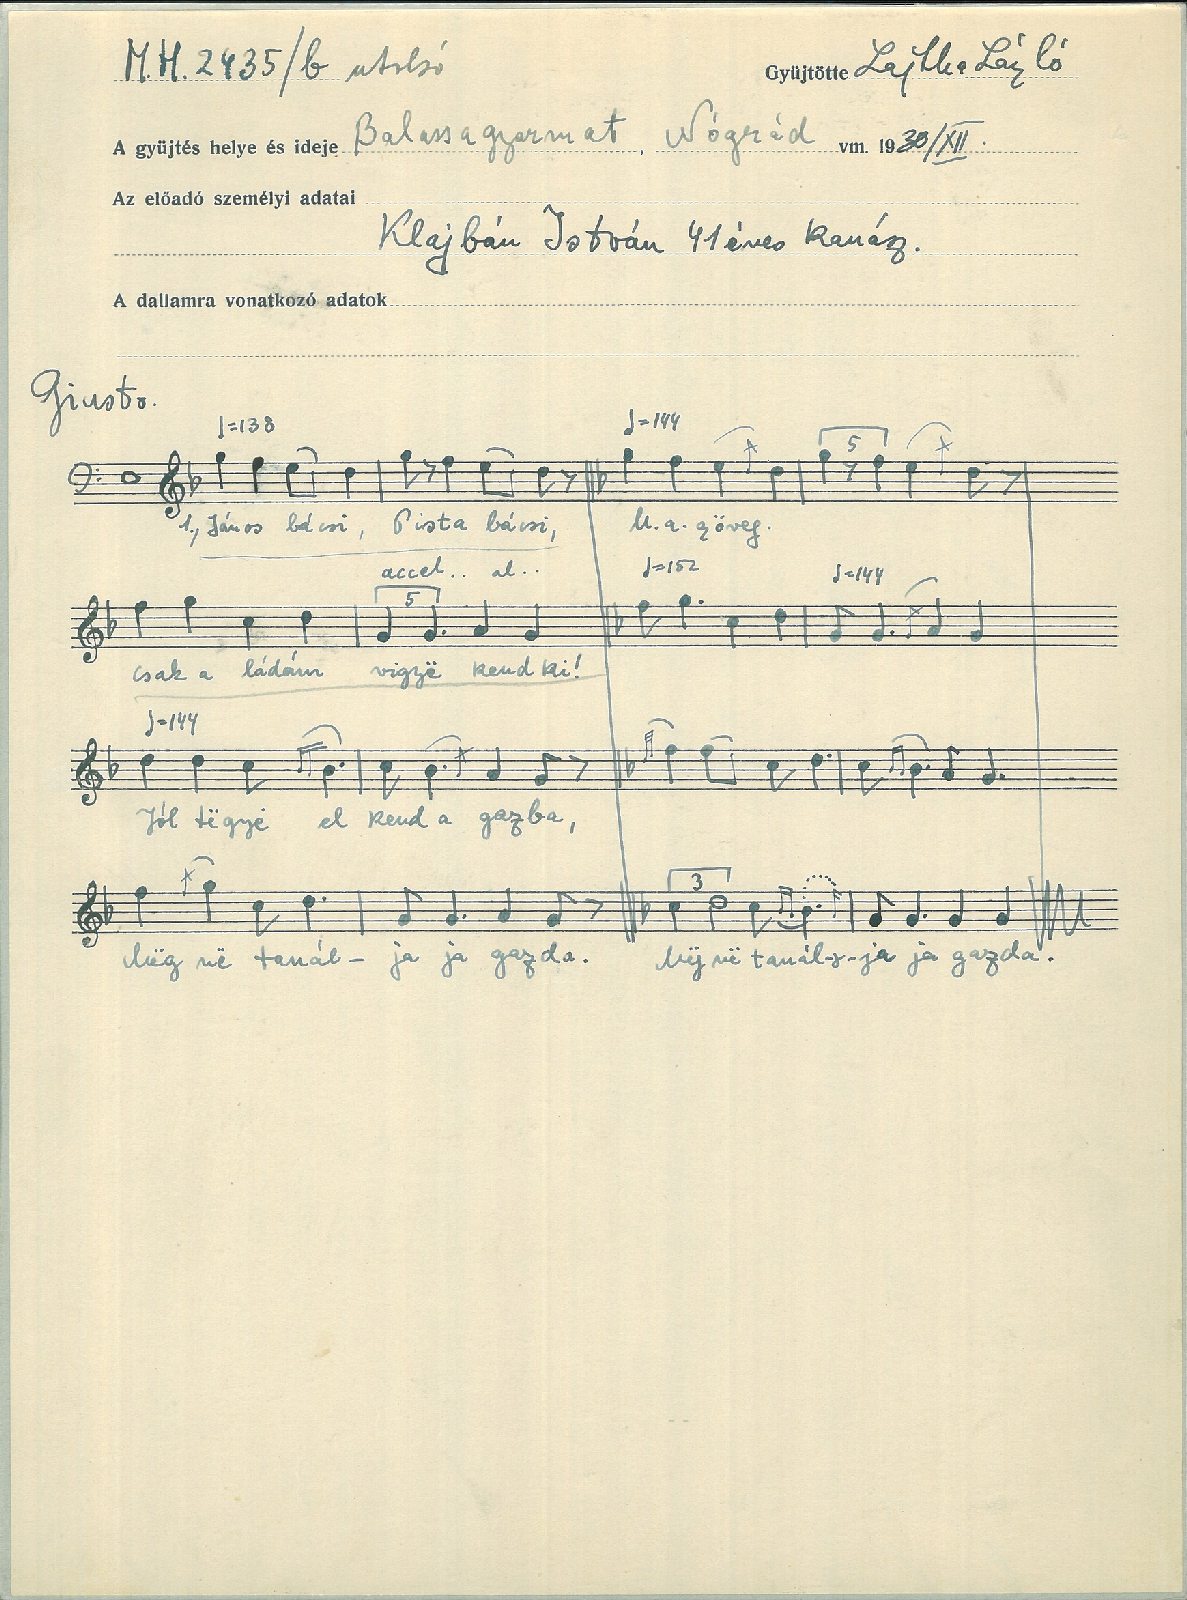 M.H. 2435/b utolsó
Gyüjtötte Lajtha László
A gyüjtés helye és ideje Balassagyarmat, Nógrád vm. 1930/XII.
Az előadó személyi adatai
Klajbán István 41 éves kanász.
A dallamra vonatkozó adatok
Giusto.
♩=138 ♩=144
5
1., János bácsi, Pista bácsi, U.a. szöveg.
accel.. al.. ♩=152 ♩=144
5
csak a ládám vigyë kend ki!
♩=144
Jól tëgye el kend a gazba,
3
Mëg në tanál- ja ja gazda. Mëj në tanál-s-ja ja gazda.